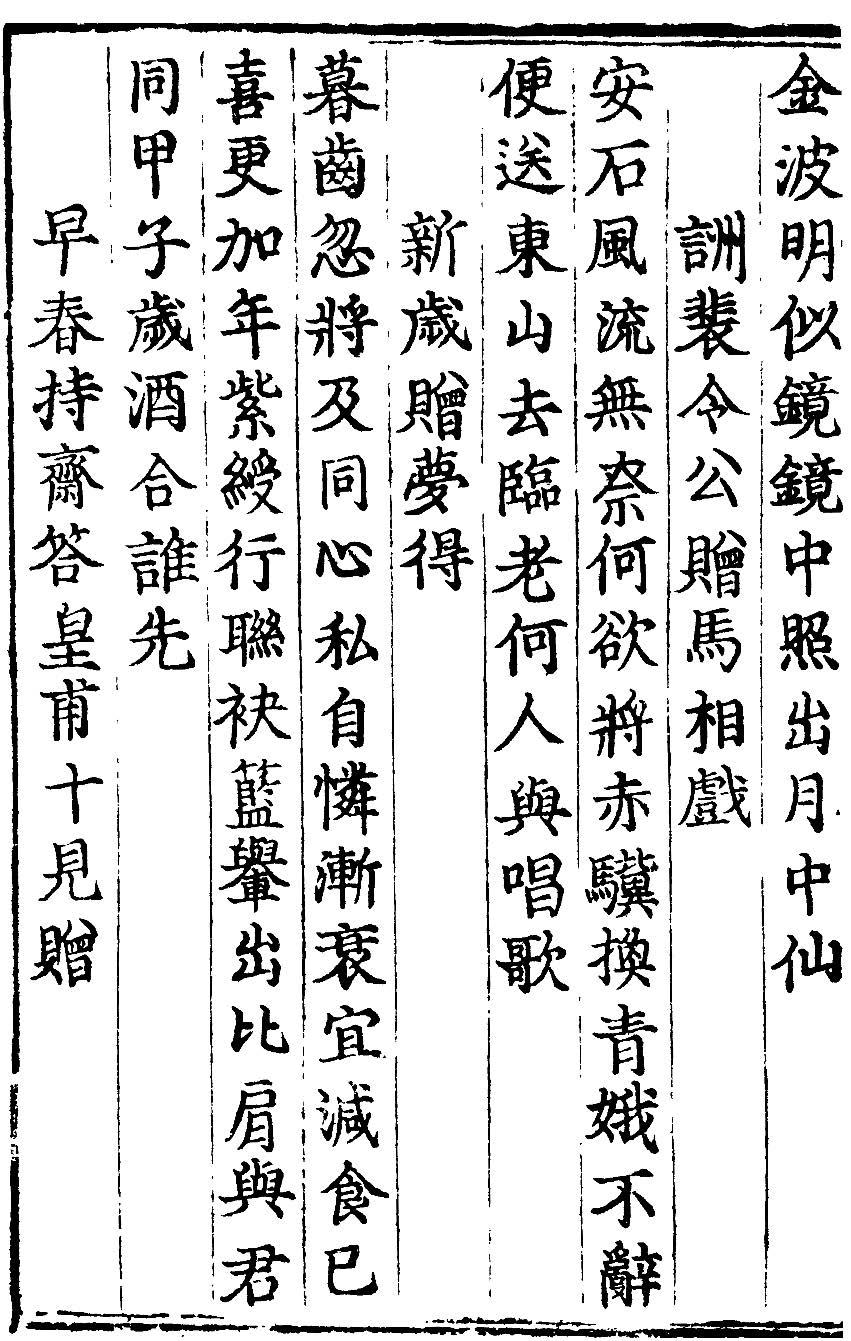 金波明似鏡鏡中照出月中仙
詶裴令公贈馬相戲
安石風流無奈何欲將赤驥換青娥不辭
便送東山去臨老何人與唱歌
新歲贈夢得
暮齒忽將及同心私自憐漸衰宜減食已
喜更加年紫綬行聯袂籃轝出比肩與君
同甲子歲酒合誰先
早春持齋答皇甫十見贈